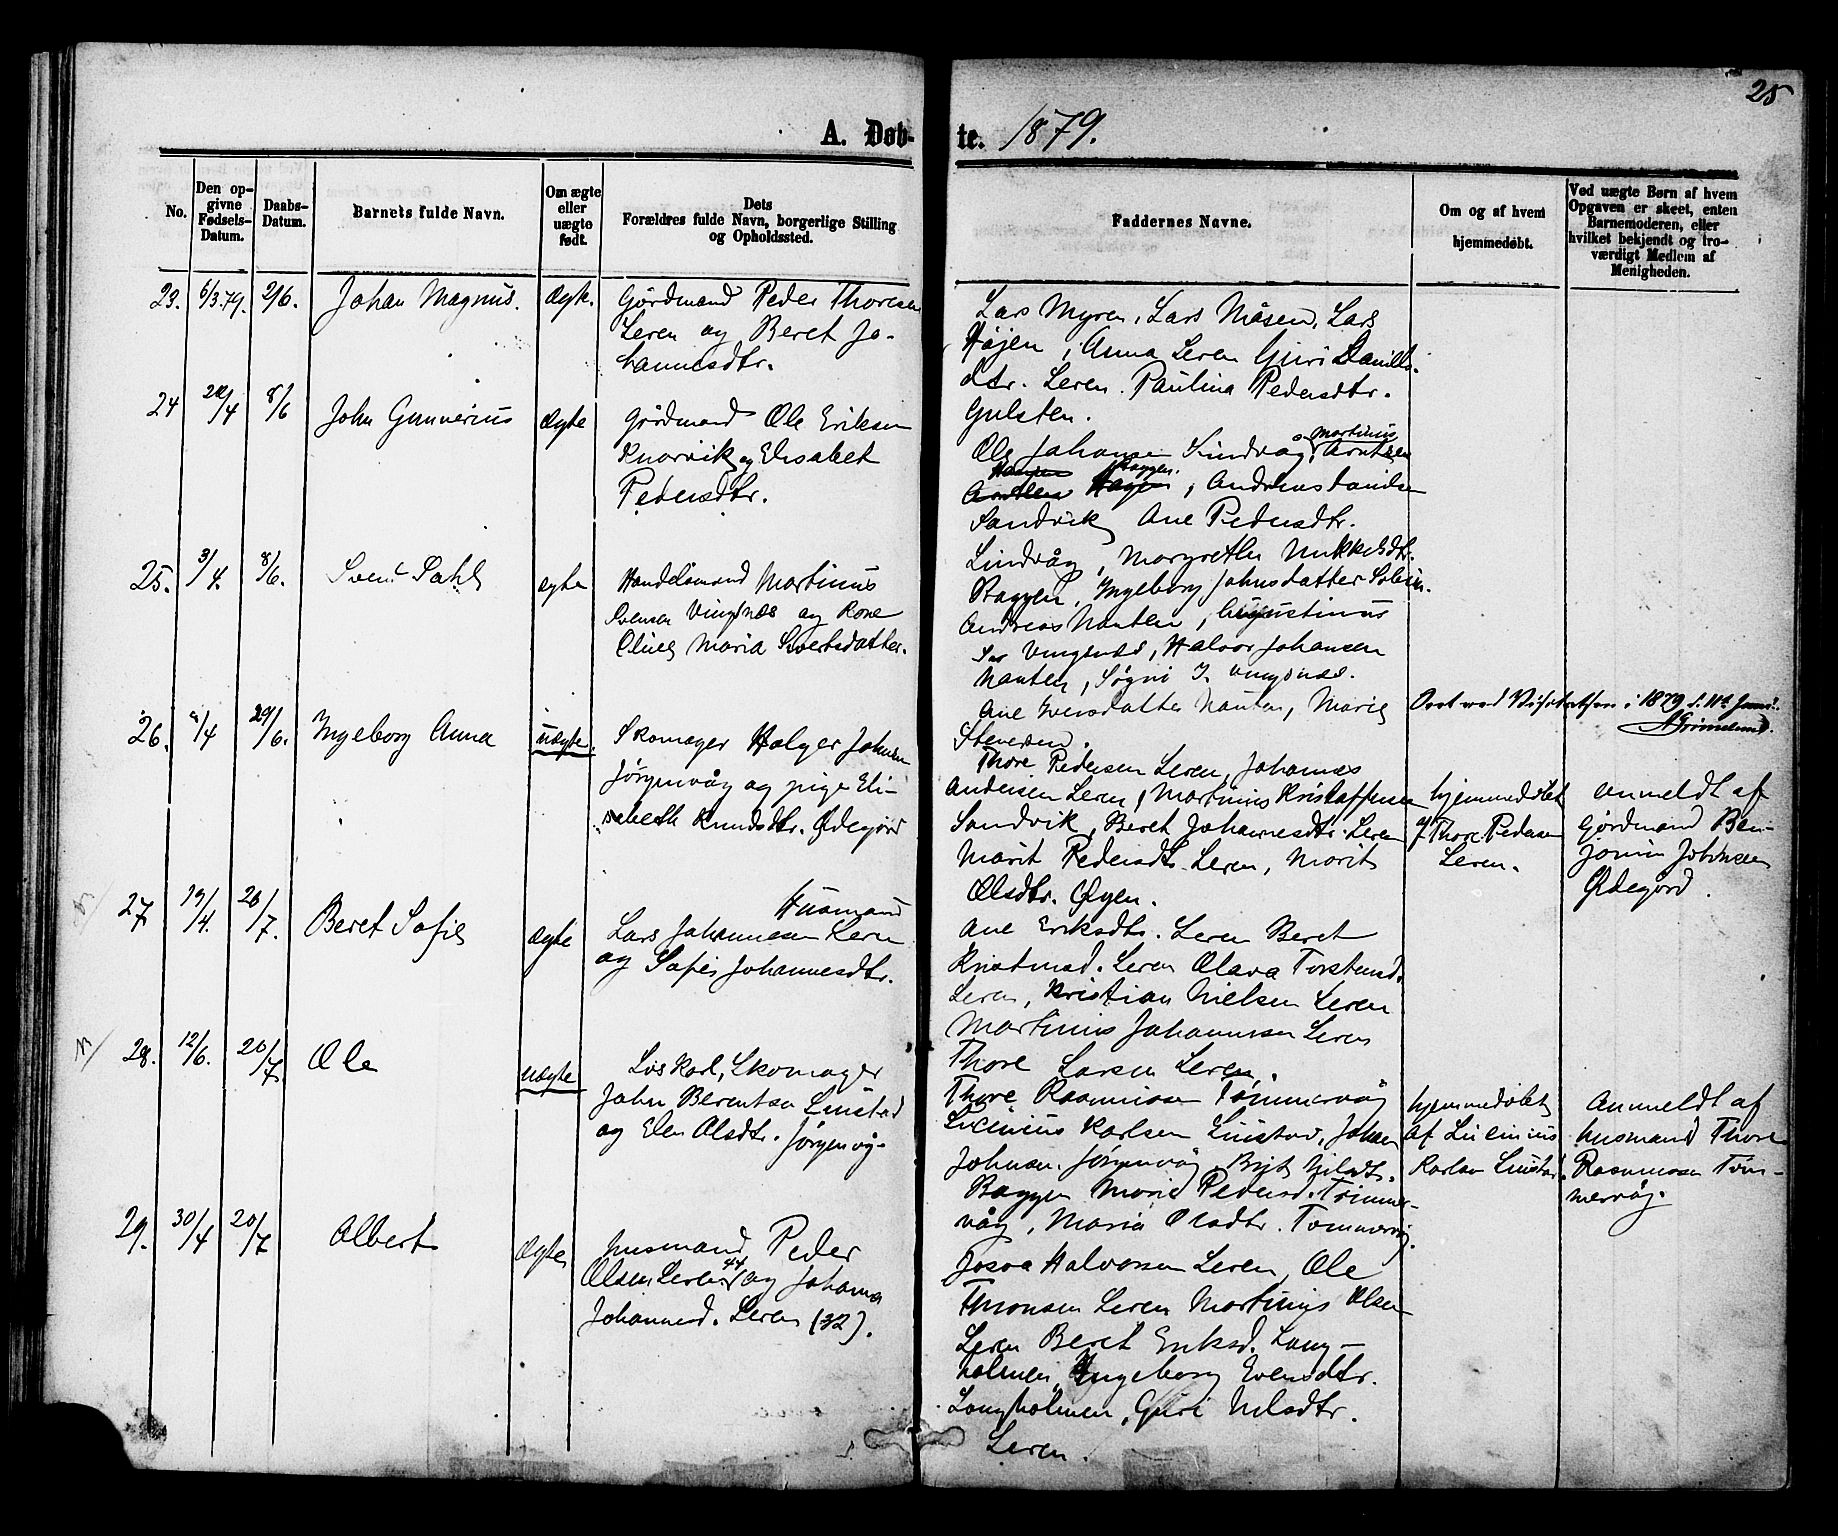 25
A. Døb- te. 1879.
No.
Den op-
givne
Fødsels-
Datum.
Daabs-
Datum.
Barnets fulde Navn.
Om ægte
eller
uægte
født.
Dets
Forældres fulde Navn, borgerlige Stilling
og Opholdssted.
Faddernes Navne.
Om og af hvem
hjemmedøbt.
Ved uægte Børn af hvem
Opgaven er skeet, enten
Barnemoderen, eller
hvilket bekjendt og tro-
værdigt Medlem af
Menigheden.
23. 6/3.79. 2/6. Johan Magnus. ægte.
Gårdmand Peder Thoresen
Leren og Beret Jo-
hannesdtr.
Lars Myren, Lars Måsen, Lars
Højen, Anna Leren Guri Daniels-
dtr. Leren. Paulina Pedersdtr.
Gulsten.
24 20/4 8/6 John Gunnerius ægte
Gårdmand Ole Eriksen
Knarvik og Elisabet
Pedersdtr.
Ole Johansen Lindvåg, Martinus Arntsen
Arntsen Hagen Raggen, Andreas
Sandvik Ane Pedersdtr.
Lindvåg, Margrethe Mikkelsdtr.
Raggen, Ingeborg Johnsdatter
25. 3/4. 8/6. Svend Dahl ægte
Handelsmand Martinus
Svensen Vingsnæs og Kone
Oline Maria Sivertsdatter.
Andreas Nauten, Augustinus
Vingsnæs, Halvor Johansen
Nauten, Søgni J. Vingsnæs.
Ane Iversdatter Nauten, Marie
Stevesen.
26. 4/4 29/6. Ingeborg Anna uægte.
Skomager Holger Johnsen
Jörgenvåg og pige Eli-
sabeth Knudsdtr. Ødegård
Thore Pedersen Leren, Johannes
Andersen Leren, Martinus Kristoffersen
Sandvik, Beret Johannesdtr. Leren
Marit Pedersdtr. Leren, Marit
Olsdtr. Øyen.
hjemmedøbt
af Thore Pedersen
Leren.
Anmeldt af
Gårdmand Ben-
jamin Johnsen
Ødegård.
Seet ved Visitatsen i 1879 d. 11te Juni.
Grimelund.
27 19/4. 20/7. Beret Sofie ægte
Husmand
Lars Johannesen Leren
og Sofie Johannesdtr.
Ane Eriksdtr. Leren Beret
Kristensd. Leren Olava Torstensd.
Leren, Kristian Nielsen Leren
Martinus Johannesen Leren
Thore Larsen Leren.
28. 12/6. 20/7. Ole uægte
Løskarl, Skomager
John Berentsen Linstad
og Elen Olsdtr. Jörgenvåg.
Thore Rasmussen Tömmervåg
Lucinius Karlsen Linstad, Johan
Johnsen Jörgenvåg, Brit Nilsdtr.
Baggen Marie Pedersd. Tömmer-
våg, Maria Olsdtr. Tömmervåg.
hjemmedøbt
af Lucinius
Karlsen Linstad.
Anmeldt af
husmand Thore
Rasmussen Töm-
mervåg.
29. 30/4 20/7 Albert ægte
husmand Peder
Olsen Leren 44 og Johanna
Johannesd. Leren (32).
Josva Halvorsen Leren, Ole
Leren Martinus Olsen
Leren Beret Eriksd. Lang-
holmen, Ingeborg Evensdtr.
Langholmen, Guri Nilsdtr.
Leren.